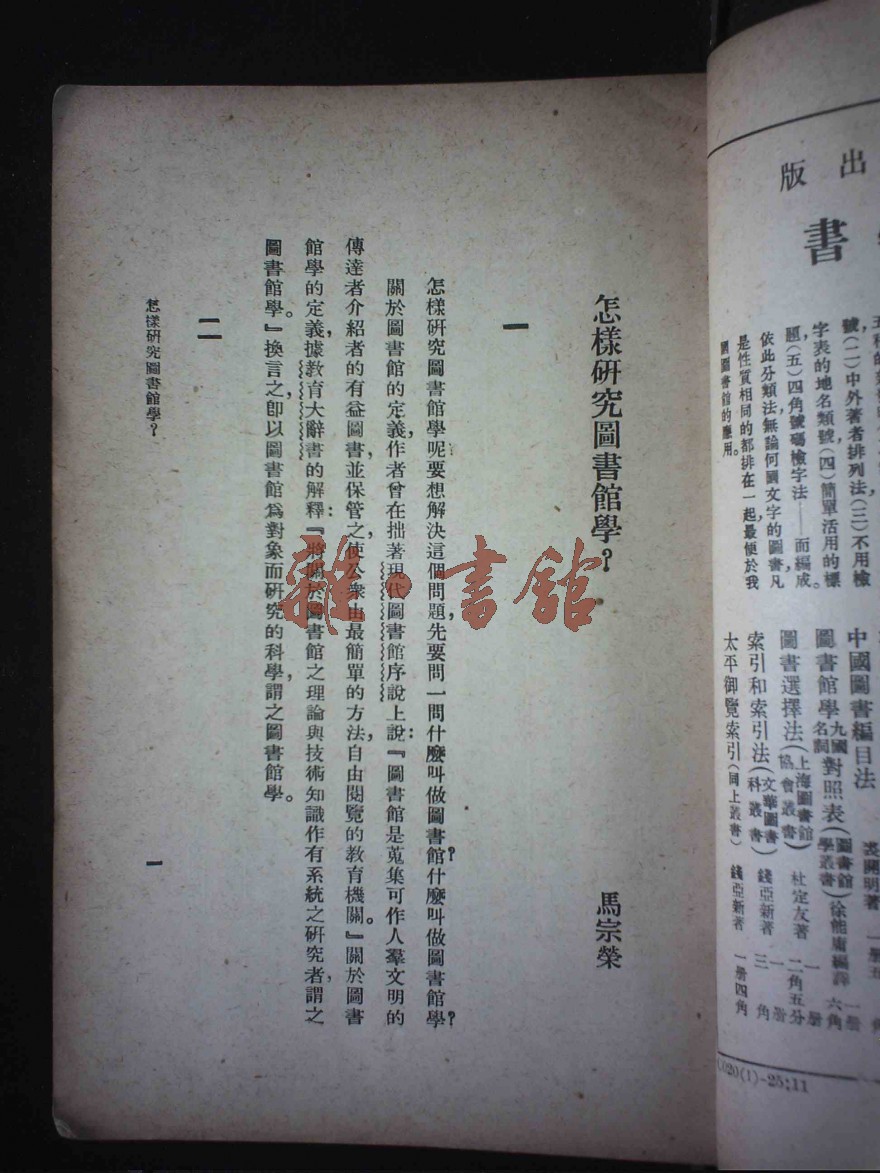 出版
書
五
號(二)中外著者排列法(三)不用檢
字表的地名類號(四)簡單活用的標
題(五)四角號碼檢字法——而編成
依此分類法無論何國文字的圖書凡
是性質相同的都排在一起最便於我
國圖書館的應用。
裘開明著 一册五角
中國圖書編目法
圖書館學九國名詞對照表(圖書館學叢書)徐能庸編譯 一册六角
圖書選擇法(上海圖書館協會叢書)杜定友著 一册二角五分
索引和索引法(文華圖書科叢書)錢亞新著 一册三角
太平御覽索引(同上叢書)錢亞新著 一册四角
(1)-25;11
怎樣研究圖書館學?
馬宗榮
一
怎樣研究圖書館學呢要想解決這個問題,先要問一問什麼叫做圖書館?什麼叫做圖書館學?
關於圖書館的定義,作者曾在拙著現代圖書館序說上說:『圖書館是蒐集可作人羣文明的
傳達者介紹者的有益圖書,並保管之,使公衆由最簡單的方法,自由閱覽的教育機關。』關於圖書
館學的定義,據教育大辭書的解釋:『將關於圖書館之理論與技術知識作有系統之研究者,謂之
圖書館學。』換言之,卽以圖書館爲對象而研究的科學,謂之圖書館學。
二
怎樣研究圖書館學?
一
雜·書館